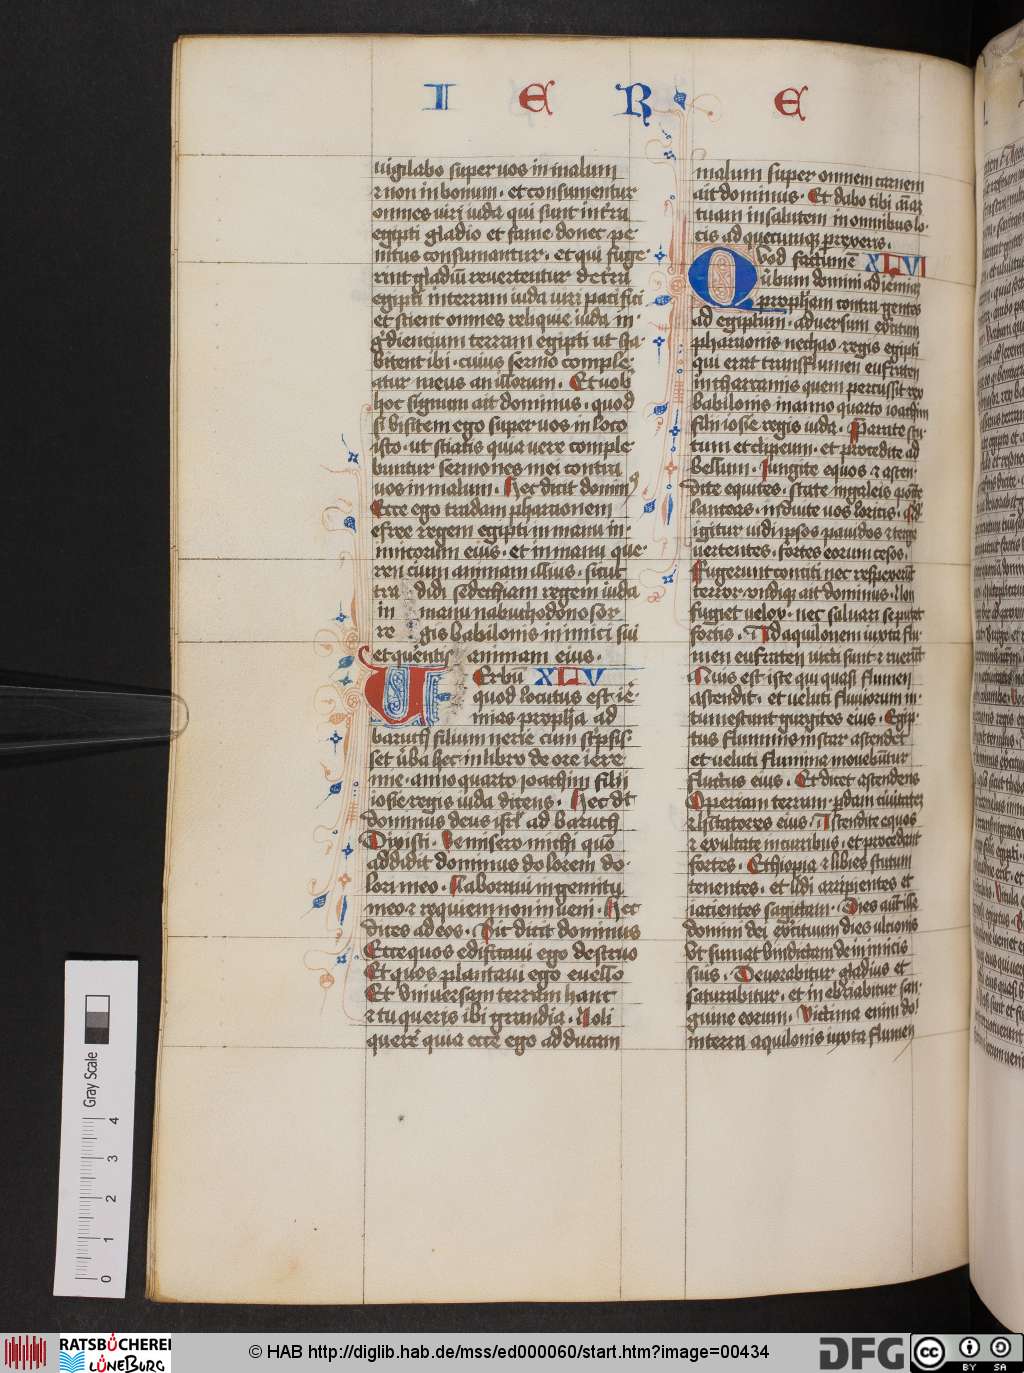 I E R E
uigilabo super uos in malum
⁊ non in bonum · et consumentur
omnes uiri iuda qui sunt in t̄ra
egipti gladio et fame donec pe
nitus consumantur · et qui fuge
rint gladiū reuertentur de t̄ra
egipti in terram iuda uiri pauci
et scient omnes reliquie iuda in
g̅diencium terram egipti ut ha
bitent ibi · cuius sermo comple
atur meus an illorum · Et uob̄
hoc signum ait dominus · quod
si visitem ego super uos in loco
isto · ut sciatis quia uere comple
buntur sermones mei contra
uos in malum · Hec dicit domin9
Ecce ego tradam pharaonem
efree regem egipti in manu in
imicorum eius · et in manu que
rencium animam illius · sicut
tra didi sedechiam regem iuda
in manu nabuchodonosor
re gis babilonis inimici sui
et querentis animam eius ·
Verbū XLV
quod locutus est ie
mias proph̄a ad
baruch filium nerie cum sc̄psis
set v̄ba hec in libro de ore iere
mie · anno quarto ioachim filii
iosie regis iuda dicens · Hec dt̄
dominus deus isrl̄ ad baruch
Dixisti · Ve misero michi quō
addidit dominus dolorem do
lori meo · Laboraui in gemitu
meo ⁊ requiem non inueni · Hec
dices ad eos · Sic dicit dominus
Ecce quos edificaui ego destruo
Et quos plantaui ego euello
Et vniuersam terram hanc
⁊ tu queris ibi grandia · Noli
querē quia ecce ego adducam
malum super omnem carnem
ait dominus · Et dabo tibi aīaꝫ
tuam in salutem in omnibus lo
cis ad quecumqꝫ ꝑrexeris ·
Quod factum ē XLVI
v̄bum domini ad ieremiā
proph̄am contra gentes
ad egiptum · aduersum ex̄citum
pharaonis nechao regis egipti
qui erat iuxta flumen eufraten
in charcamis quem percussit rex
babilonis in anno quarto ioachim
filii iosie regis iuda · Parate scu
tum et clipeum · et procedite ad
bellum · Iungite equos ⁊ ascen
dite equites · state in galeis polite
lanceas · induite uos loricis · q̄d
igitur uidi ipsos pauidos ⁊ terga
uertentes · fortes eorum cesos ·
Fugerunt conciti nec respexerūt
terror vndiqꝫ ait dominus · Non
fugiet velox · nec saluari se putet
fortis · Ad aquilonem iuxta flu
men eufraten uicti sunt ⁊ ruerūt
Quis est iste qui quasi flumen
ascendit · et veluti fluuiorum in
tumescunt gurgites eius · Egip
tus fluminis instar ascendet
et veluti flumina mouebuntur
fluctus eius · Et dicet ascendens
Operiam terram · ꝑdam ciuitatem
⁊ h̄itatores eius · Ascendite equos
⁊ exultate in curribus · et procedant
fortes · Ethiopia ⁊ libies scutum
tenentes · et lidi arripientes et
iacientes sagittam · Dies aūt ille
domini dei ex̄cituum dies ulcionis
Vt sumat vindictam de inimicis
suis · Deuorabitur gladius et
saturabitur · et inebriabitur san
guine eorum · Victima enim do
in terra aquilonis iuxta flumen
Gray Scale
0 1 2 3 4
RATSBÜCHEREI LÜNEBURG
© HAB http://diglib.hab.de/mss/ed000060/start.htm?image=00434
DFG
cc BY SA